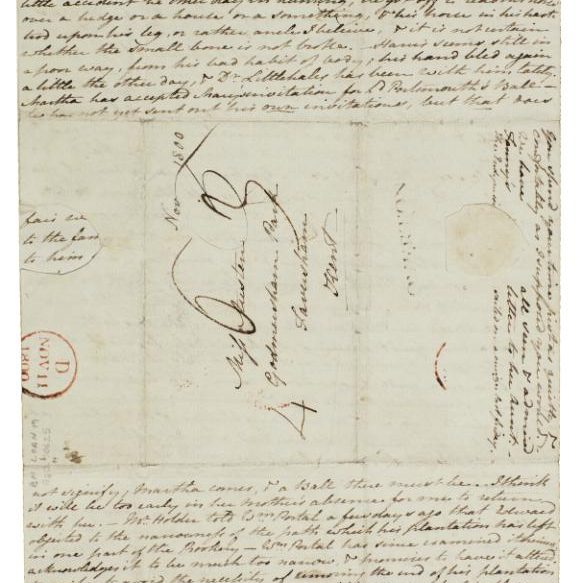 little accident he other day in hunting; he got off to
over a hedge or a house or a something, & his horse in his haste
trod upon his leg, or rather ancle I beleive, & it is not certain
whether the small bone is not broke. — Harris seems still in
a poor way, from his bad habit of body; his hand bled again
a little the other day, & Dr. Littlehales has been with him lately.
Martha has accepted Mary's invitation for Ld Portsmouth's Ball. —
He has not yet sent out his own invitations, but that does
Nov 1800
Miss Austen
Godmersham Park
Faversham
Kent
4
to the
to him
D
NOV 11
1800
You spend your time just as quietly &
comfortably as I supposed you would. —
We have all seen & admired
Fanny's letter to her Aunt. —
The Endymion sailed on a cruize last friday.
not signify; Martha comes, & a Ball there must be. — I think
it will be too early in her Mother's absence for me to return
with her. — Mr. Holder told Wm Portal a few days ago that Edward
objected to the narrowness of the path which his plantation has left
in one part of the Rookery. — Wm Portal has since examined it himself,
acknowledges it to be much too narrow, & promises to have it altered.
to avoid the necessity of removing the end of his plantation